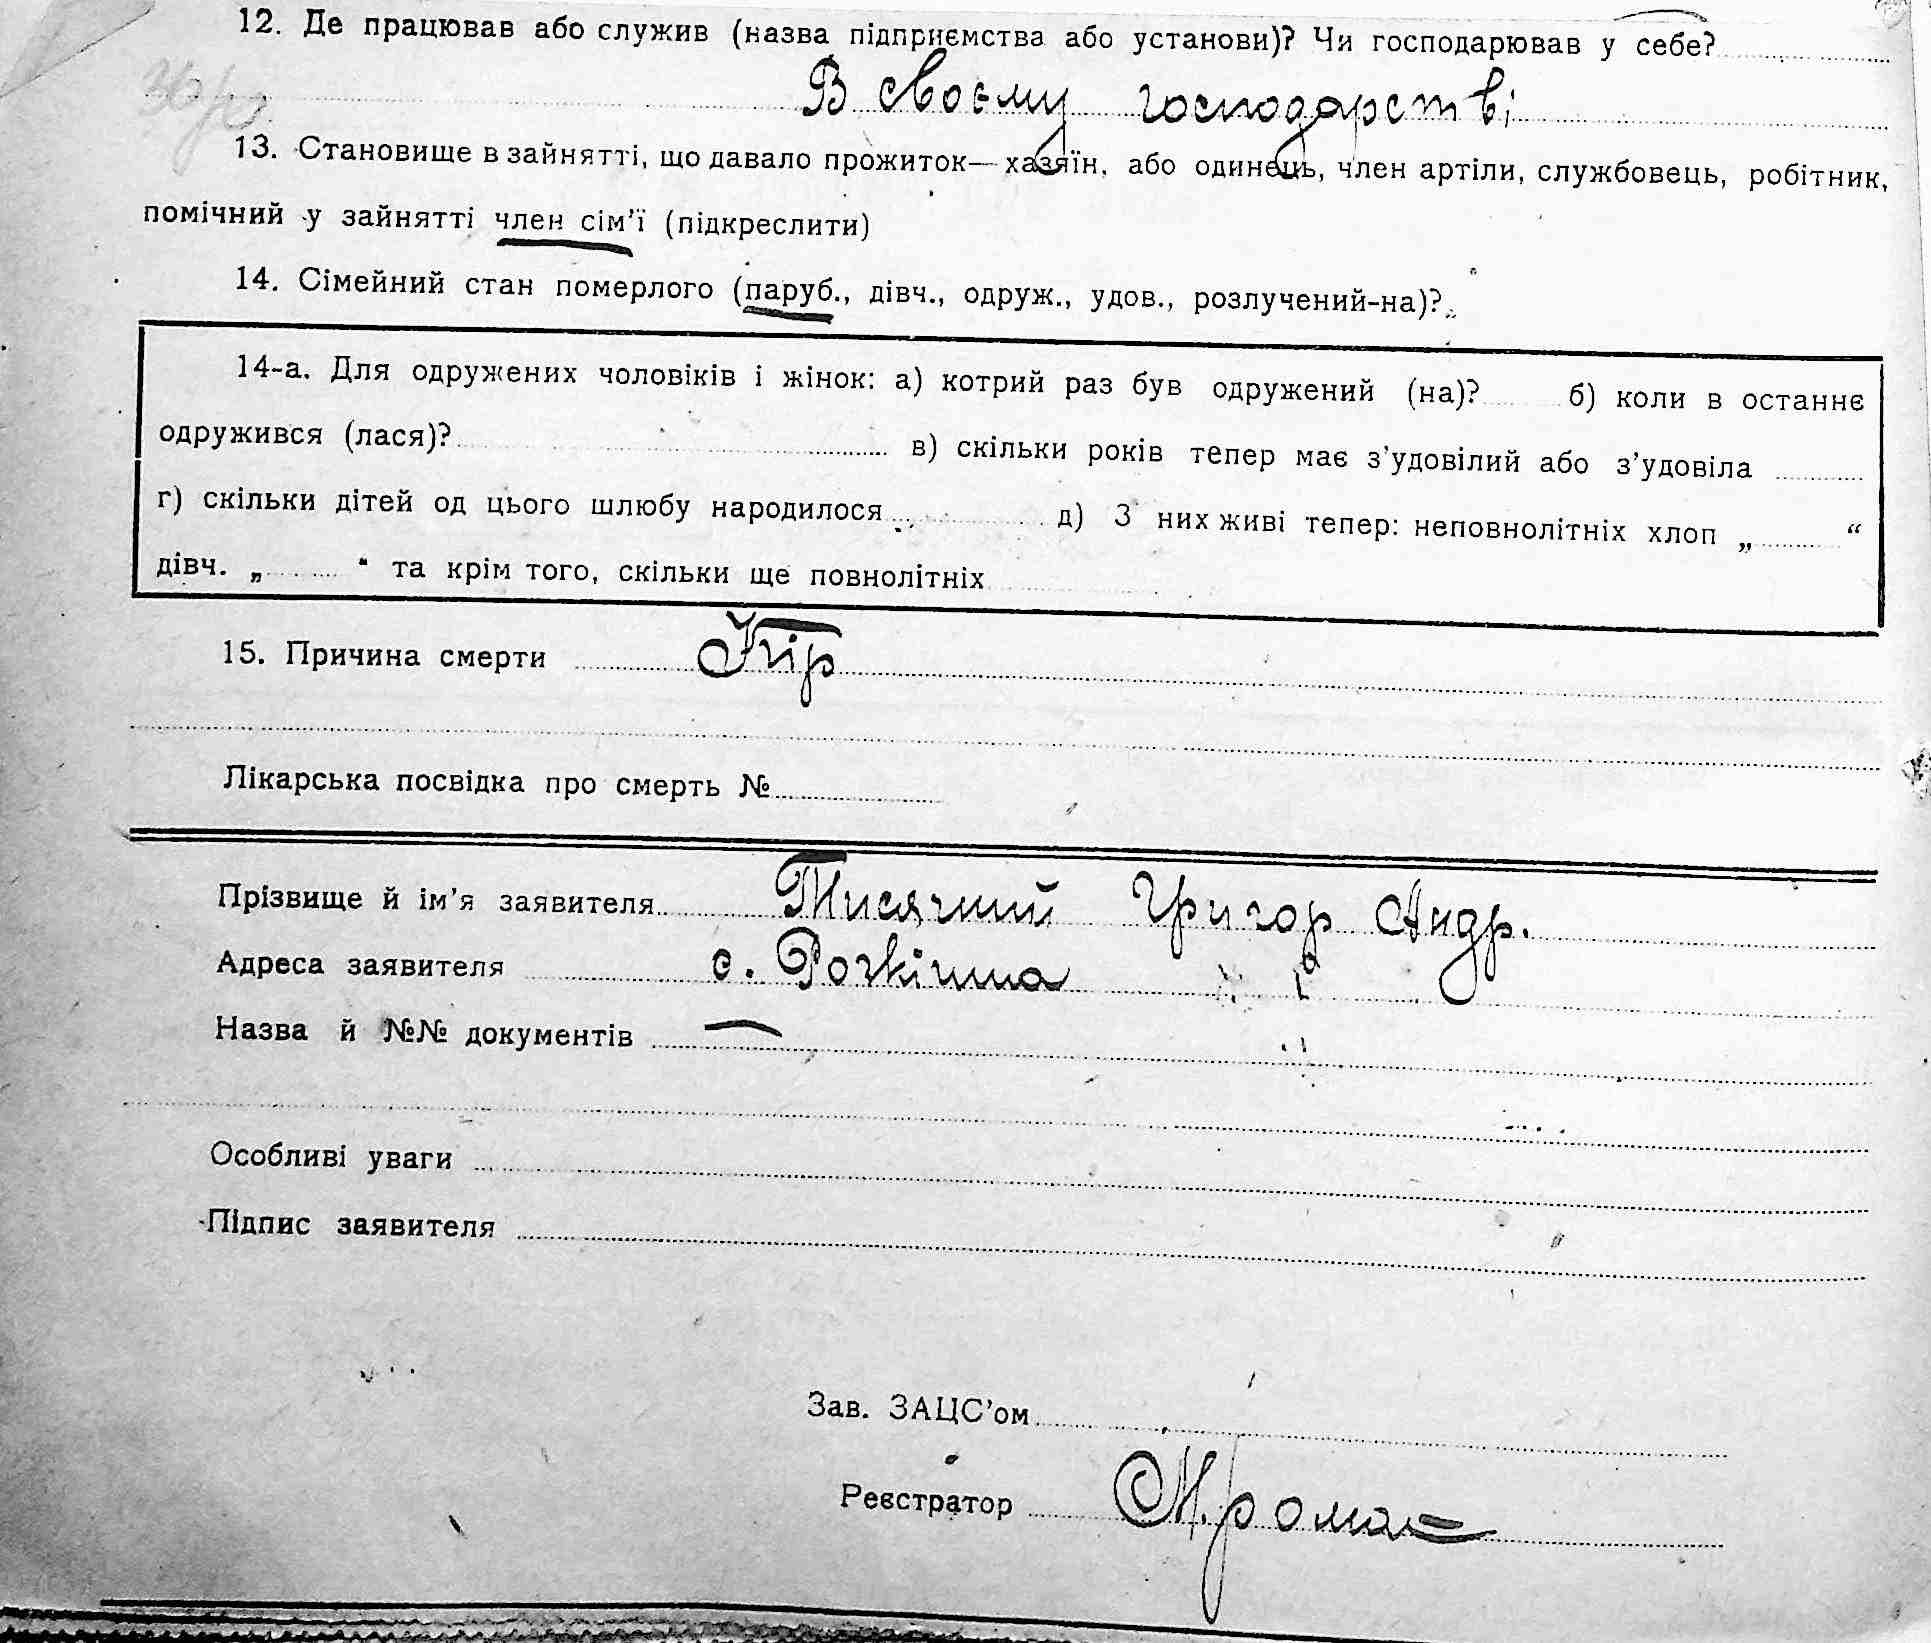 12. Де працював або служив (назва підприємства або установи)? Чи господарював у себе?
В своєму господарстві
13. Становище в зайнятті, що давало прожиток—хазяїн, або одинець, член артіли, службовець, робітник,
помічний у зайнятті член сім'ї (підкреслити)
14. Сімейний стан померлого (паруб., дівч., одруж., удов., розлучений-на)?
14-а. Для одружених чоловіків і жінок: а) котрий раз був одружений (на)? б) коли в останнє
одружився (лася)? в) скільки років тепер має з'удовілий або з'удовіла
г) скільки дітей од цього шлюбу народилося д) З них живі тепер: неповнолітніх хлоп „ “
дівч. „ “ та крім того, скільки ще повнолітніх
15. Причина смерти
Лікарська посвідка про смерть №
Прізвище й ім'я заявителя Тисячний Григор Андр.
Адреса заявителя с. Розкішна
Назва й №№ документів —
Особливі уваги
Підпис заявителя
Зав. ЗАЦС'ом
Реєстратор